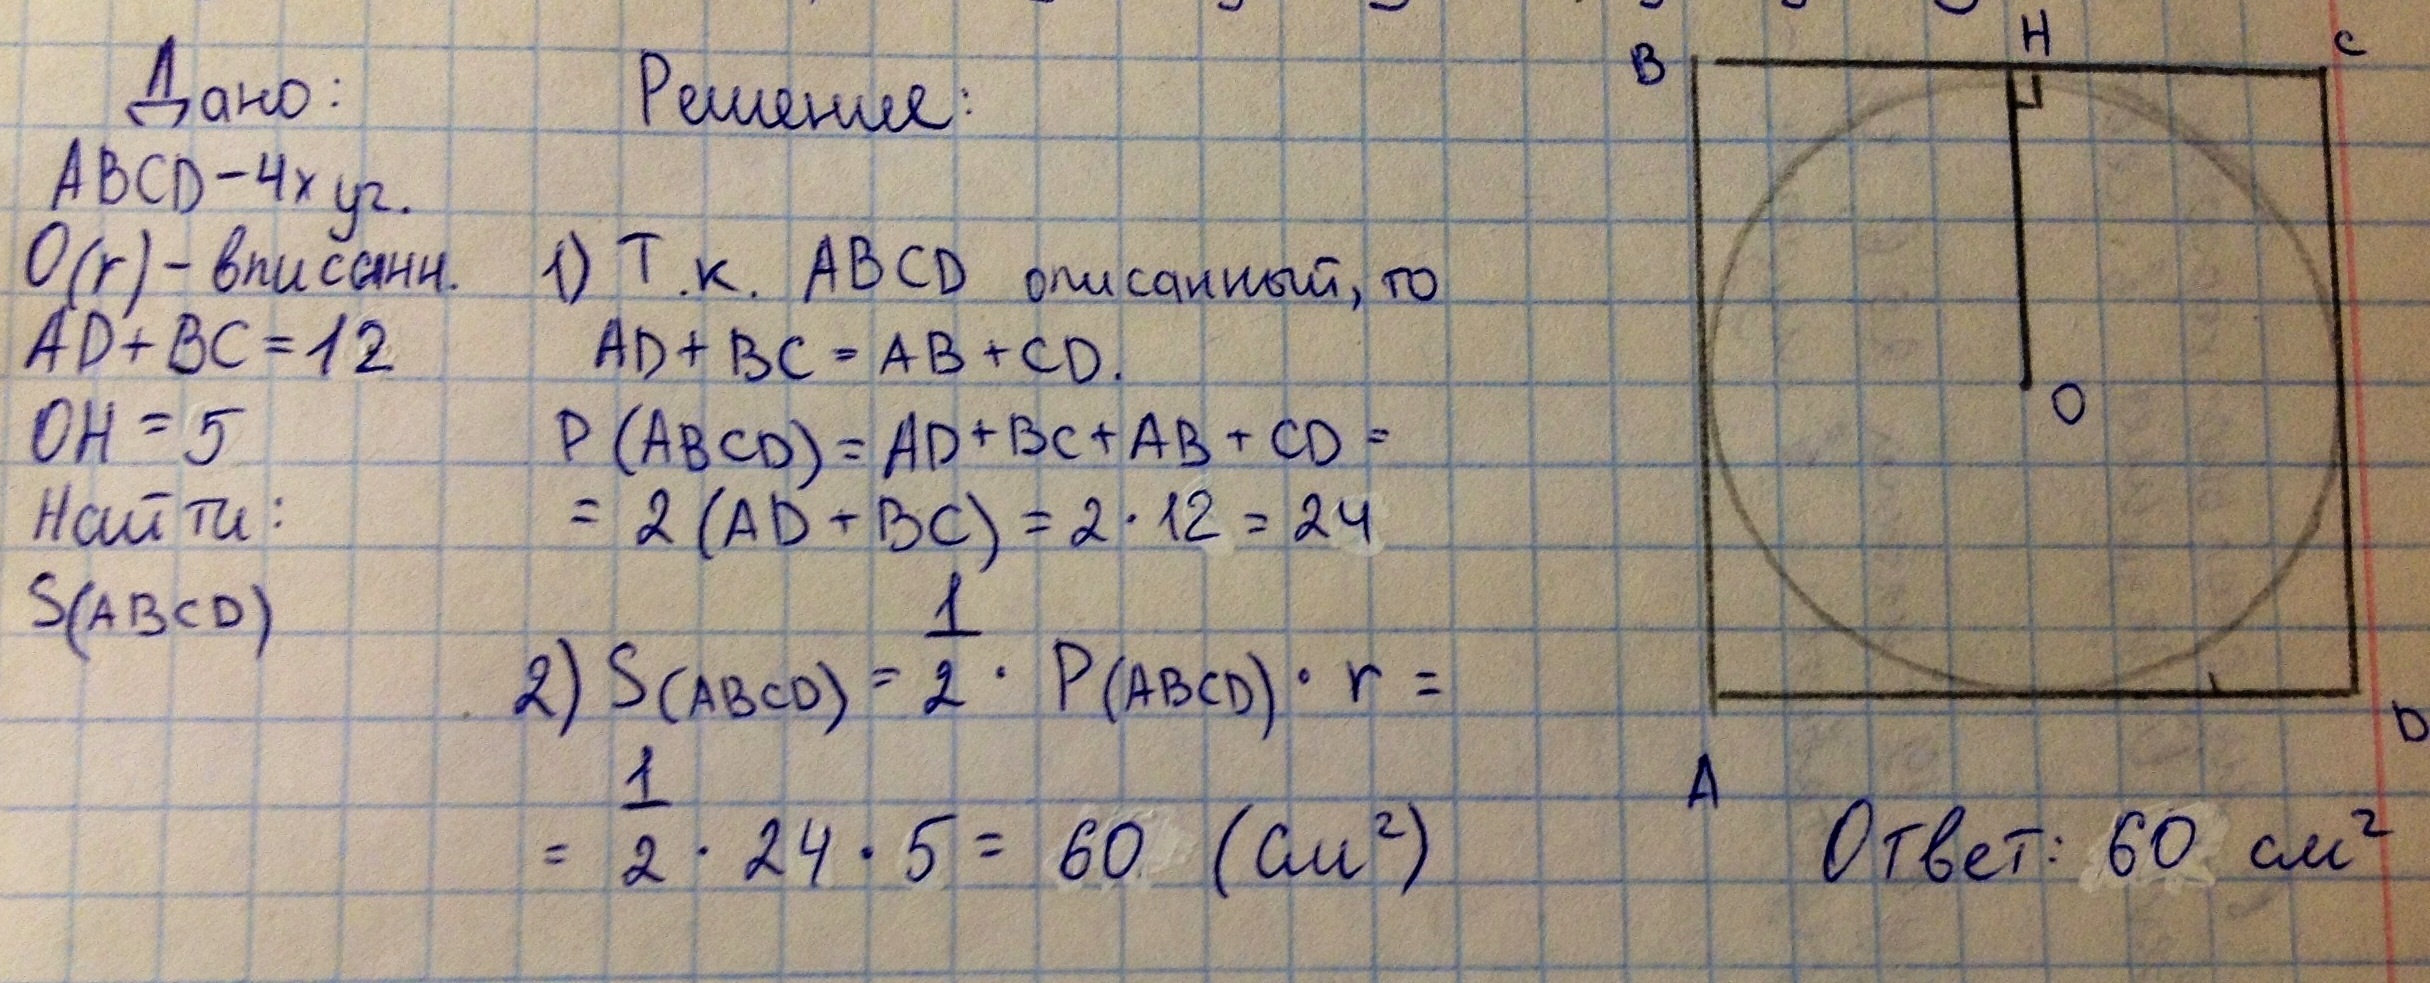 Дано:
ABCD-4х уг.
O(r) - вписанн.
AD+BC=12
OH=5
Найти:
S(ABCD)
Решение:
1) Т.к. ABCD описанный, то
AD+BC=AB+CD.
P(ABCD)=AD+BC+AB+CD=
=2(AD+BC)=2·12=24
2) S(ABCD)=1/2·P(ABCD)·r=
=1/2·24·5=60 (см²)
B
H
C
O
A
D
Ответ: 60 см²